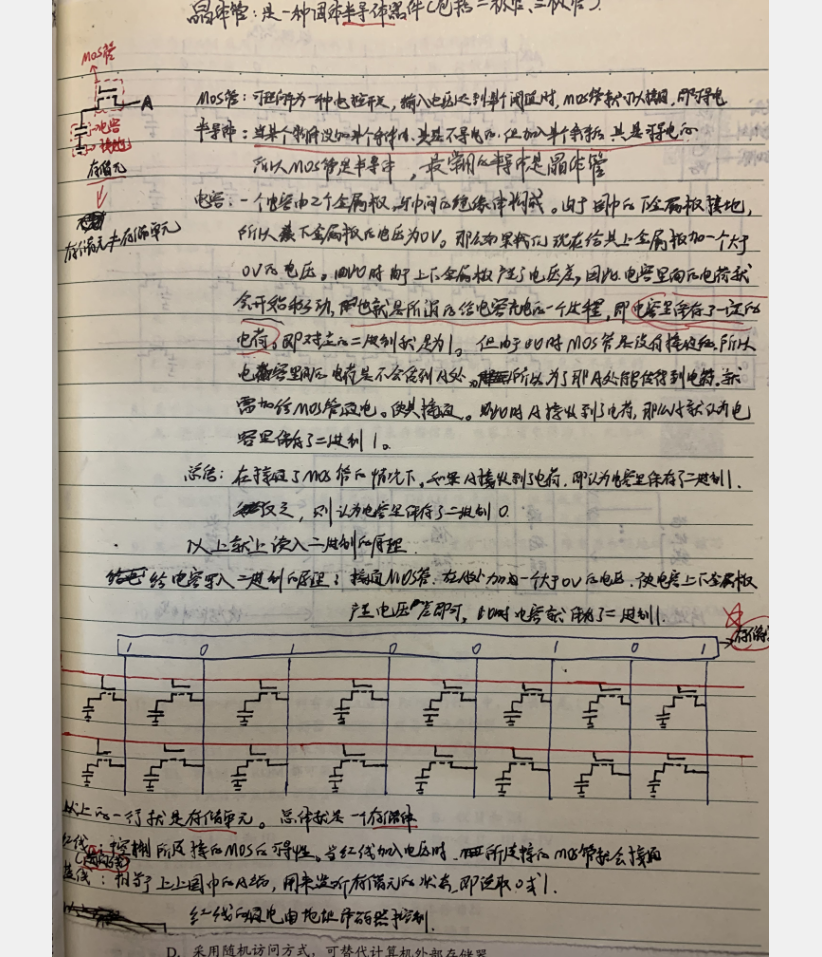 晶体管：是一种固体半导体器件（包括二极管、三极管）.
MOS管
A
电容
接地
存储元
存储元≠存储单元
MOS管：可理解为一种电控开关，输入电压达到某个阈值时，MOS管就可以接通，即可导电
半导体：当某个物质没加某个条件时，其是不导电的，但加入某个条件后，其是导电的
所以MOS管是半导体，最常用的半导体是晶体管
电容：一个电容由2个金属板，与中间的绝缘体构成。由于图中的下金属板接地，
所以下金属板的电压为0V。那么如果我们现在给其上金属板加一个大于
0V的电压。此时由于上下金属板产生了电压差，因此电容里面的电荷就
会开始移动，也就是所谓的给电容充电的一个过程，即电容里保存了一定的
电荷。即对应的二进制就是为1。但由于此时MOS管是没有接通的，所以
电容里面的电荷是不会传到A处，所以为了那A处能够得到电荷，就
需加给MOS管通电。使其接通。此时A接收到了电荷，那么就认为电
容里保存了二进制1。
总结：在接通了MOS管的情况下，如果A接收到了电荷，即认为电容里保存了二进制1.
反之，则认为电容里保存了二进制0.
以上就上读入二进制的原理.
给电容写入二进制的原理：接通MOS管，在A处加如一个大于0V的电压，使电容上下金属板
产生电压差即可，此时电容就保存了二进制1.
1 0 1 0 0 1 0 1
存储体
以上的一行就是存储单元。总体就是一个存储体
红线：控制所连接的MOS的导性。当红线加入电压时，所连接的MOS管就会接通
蓝线：相当于上上图中的A端，用来监听存储元的状态，即读取0或1.
红线的通电由地址译码器来控制.
D. 采用随机访问方式，可替代计算机外部存储器